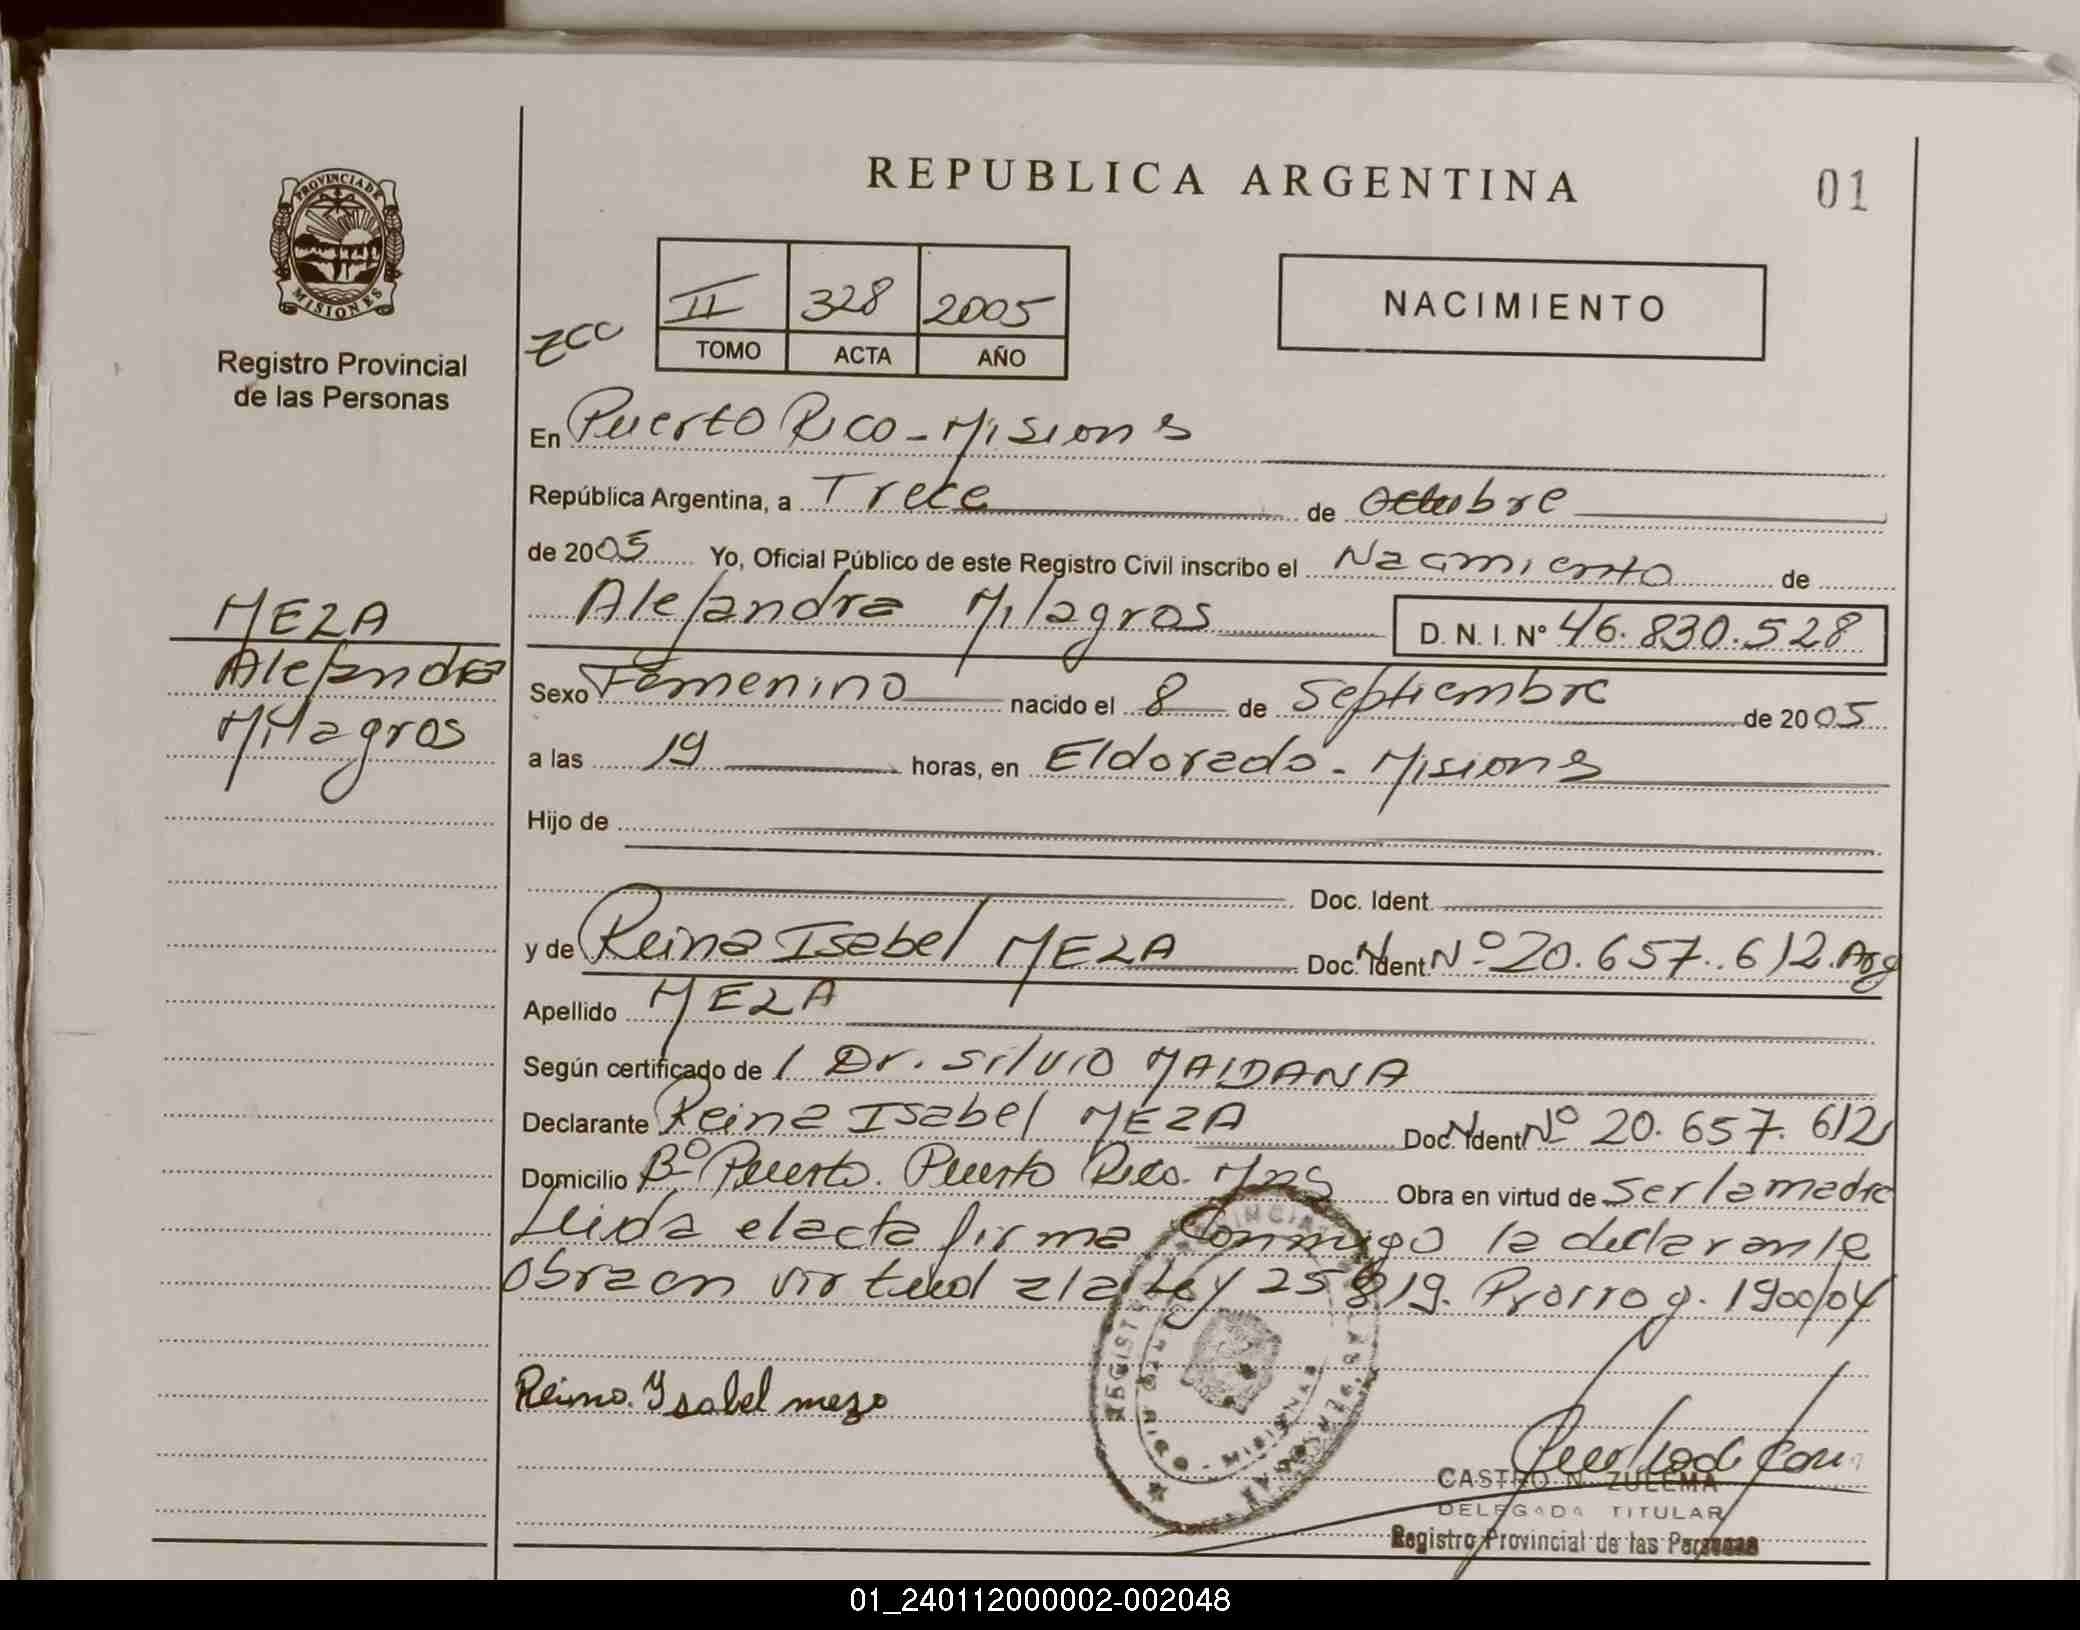 REPUBLICA ARGENTINA
01
PROVINCIA DE
MISIONES
Registro Provincial
de las Personas
II 328 2005
TOMO ACTA AÑO
NACIMIENTO
En Puerto Rico - Misiones
República Argentina, a Trece de Octubre
de 2005 Yo, Oficial Público de este Registro Civil inscribo el Nacimiento de
Alejandra Milagros D. N. I. Nº 46.830.528
MEZA
Alejandra
Milagros
Sexo Femenino nacido el 8 de Septiembre de 2005
a las 19 horas, en Eldorado - Misiones
Hijo de
Doc. Ident.
y de Reina Isabel MEZA Doc. Ident Nº 20.657.612. Arg
Apellido MEZA
Según certificado de / Dr. Silvio MAIDANA
Declarante Reina Isabel MEZA Doc. Ident Nº 20.657.612
Domicilio Bº Puerto. Puerto Rico. Mns Obra en virtud de ser la madre
Leida el acta firma Conmigo la declarante
obra en virtud a la Ley 25819. Prorrog. 1900/04
Reina Ysabel meza
CASTRO N. ZULEMA
DELEGADA TITULAR
Registro Provincial de las Personas
01_240112000002-002048